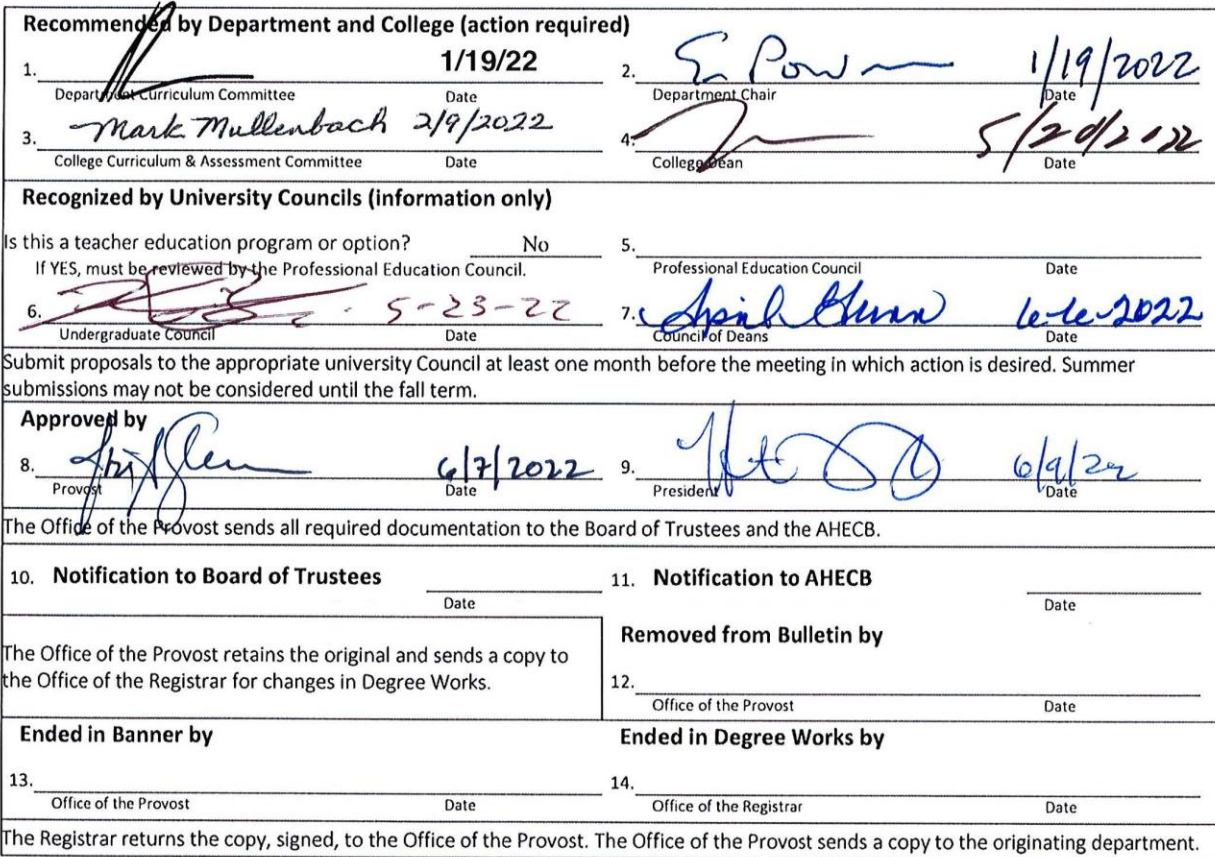 Recommended by Department and College (action required)
1. 1/19/22 2. 1/19/2022
Department Curriculum Committee Date Department Chair Date
3. Mark Mullenbach 2/9/2022 4.
College Curriculum & Assessment Committee Date College Dean Date
Recognized by University Councils (information only)
Is this a teacher education program or option? No 5.
If YES, must be reviewed by the Professional Education Council. Professional Education Council Date
6. 5-23-22 7.
Undergraduate Council Date Council of Deans Date
Submit proposals to the appropriate university Council at least one month before the meeting in which action is desired. Summer
submissions may not be considered until the fall term.
Approved by
8. 6/7/2022 9.
Provost Date President Date
The Office of the Provost sends all required documentation to the Board of Trustees and the AHECB.
10. Notification to Board of Trustees 11. Notification to AHECB
Date Date
Removed from Bulletin by
The Office of the Provost retains the original and sends a copy to
the Office of the Registrar for changes in Degree Works.
12.
Office of the Provost Date
Ended in Banner by Ended in Degree Works by
13. 14.
Office of the Provost Date Office of the Registrar Date
The Registrar returns the copy, signed, to the Office of the Provost. The Office of the Provost sends a copy to the originating department.